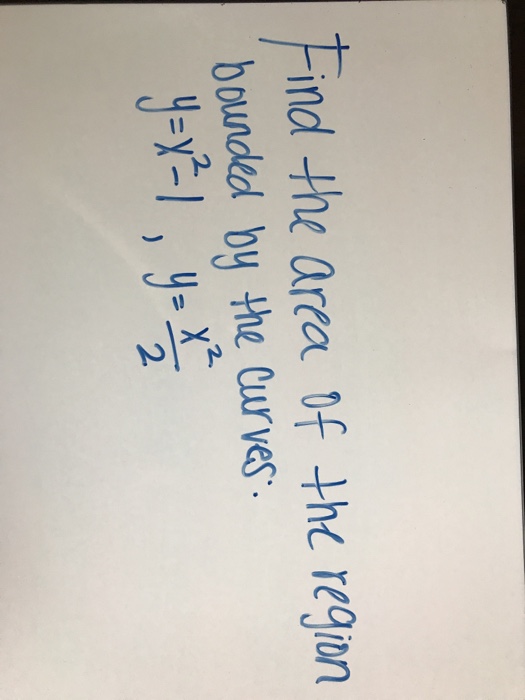 Find the area of the region
bounded by the curves:
y=x²-1, y=x²/2